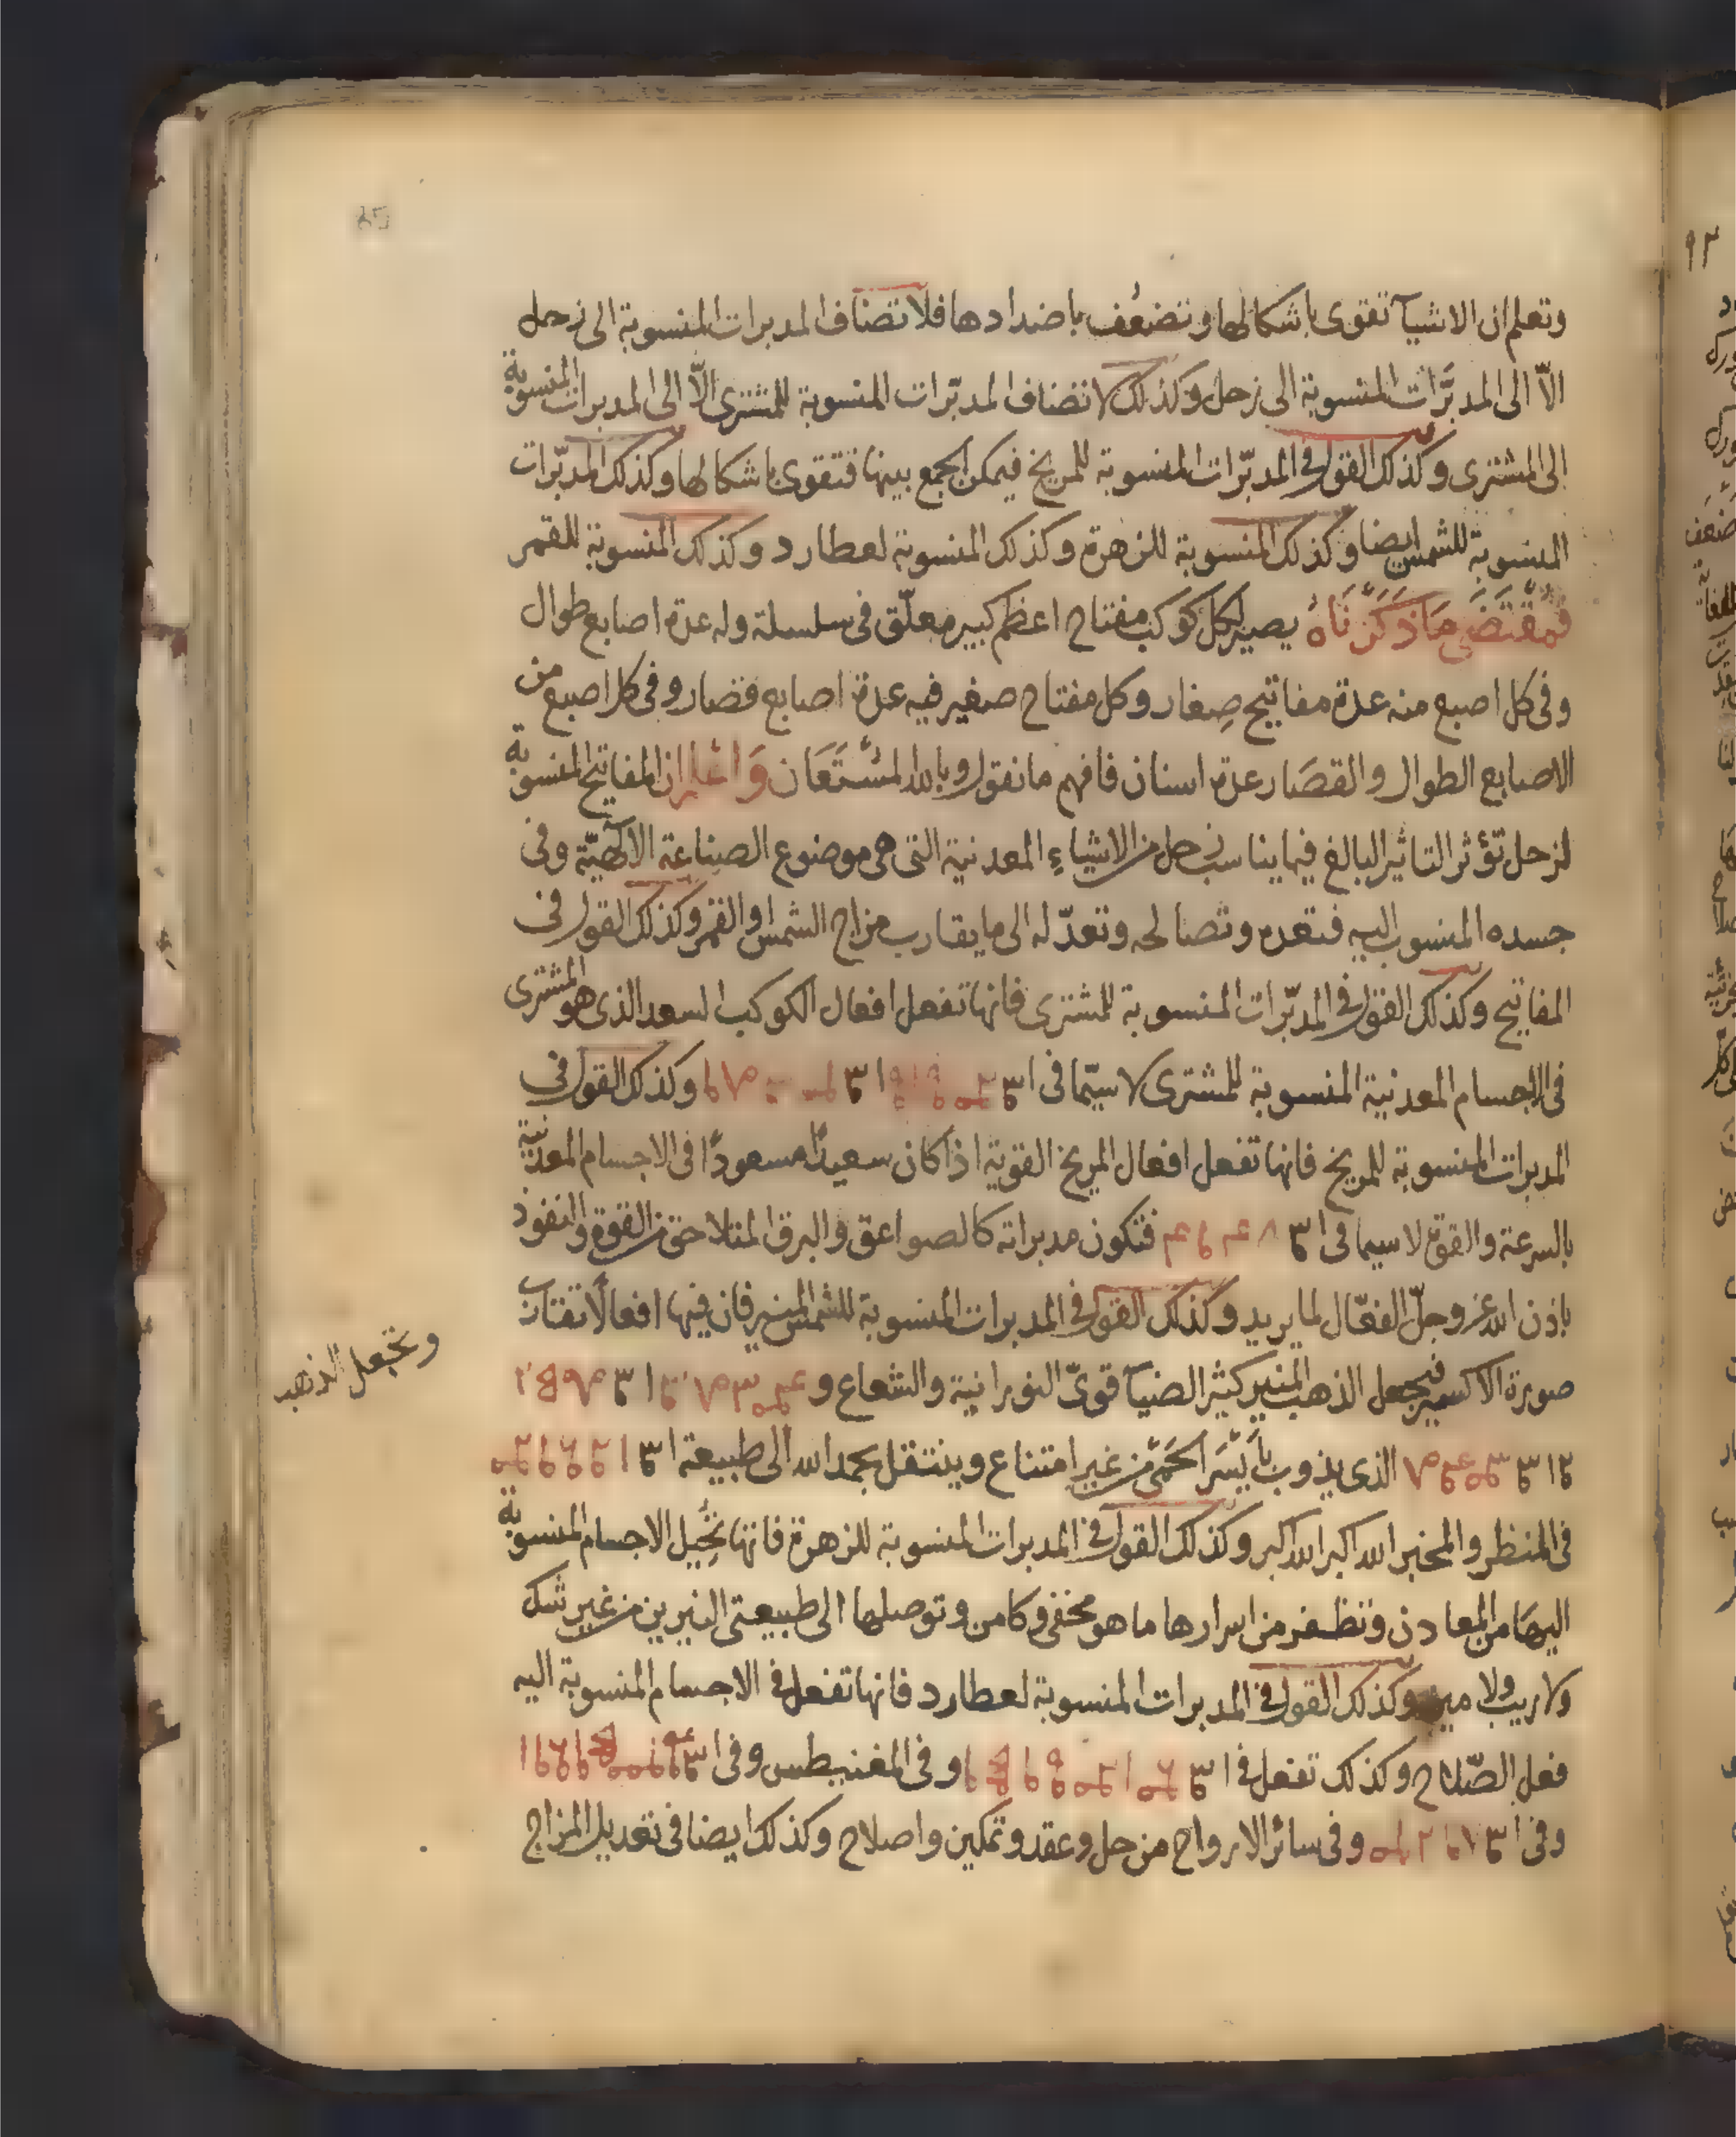 وتعلم ان الاشيآ تقوى باشكالها وتضعُف باضدادها فلا تضاف المدبرات المنسوبة الى زحل
الاّ الى المدبَّرات المنسوبة الى زحل وكذلك لا تضاف المدبّرات المنسوبة للمشترى الاّ الى المدبرات المنسوبة
الى المشترى وكذلك القول فى المدبّرات المنسوبة للمريخ فيمكن الجمع بينها فتقوى باشكالها وكذلك المدبّرات
المنسوبة للشمس ايضا وكذلك المنسوبة للزهرة وكذلك المنسوبة لعطارد وكذلك المنسوبة للقمر
فمقتضى ما ذكرناه يصير لكل كوكب مفتاح اعظم كبير معلّق فى سلسلة وله عدة اصابع طوال
وفى كل اصبع منه عدة مفاتيح صِغار وكل مفتاح صغير فيه عدة اصابع قصار وفى كل اصبع من
الاصابع الطوال والقصَار عدة اسنان فافهم ما نقول وبالله المسْتَعَان وَاعْلم ان المفاتيح المنسوبة
لزحل تؤثر التاثير البالغ فيما يناسب زحل من الاشياءِ المعدنية التى هى موضوع الصناعة الالٓهيّة وفى
جسده المنسوب اليه فتعده وتصالحه وتعدّله الى ما يقارب مزاج الشمس او القمر وكذلك القول فى
المفاتيح وكذلك القول فى المدبّرات المنسوبة للمشترى فانها تفعل افعال الكوكب السعد الذى هو المشترى
فى الاجسام المعدنية المنسوبة للمشترى لا سيّما فى وكذلك القول فى
المدبرات المنسوبة للمريخ فانها تفعل افعال المريخ القوية اذا كان سعيدًا مسعودًا فى الاجسام المعدنية
بالسرعة والقوة لا سيما فى فتكون مدبراته كالصواعق والبرق المتلاحق من القوة والنفوذ
باذن الله عز وجلّ الفعّال لما يريد وكذلك القول فى المدبرات المنسوبة للشمس المنير فان فيها افعالًا تقتات
صورة الاكسير فيجعل الذهب المنير كثير الضيآ قوىّ النورانية والشعاع و
ونجعل الذهب
الذى يذوب بأيْسَر الحَمْى من غير امتناع وينتقل بحمد الله الى طبيعة
فى المنظر والمخبر الله اكبر الله اكبر وكذلك القول فى المدبرات المنسوبة للزهرة فانها تُحِيل الاجسام المنسوبة
اليهَا من المعادن وتظفر من اسرارها ما هو مخفى وكامن وتوصلها الى طبيعتى النيرين من غير شك
ولا ريب ولا مين وكذلك القول فى المدبرات المنسوبة لعطارد فانها تفعل فى الاجسام المنسوبة اليه
فعل الصّلاح وكذلك تفعل فى وفى المغنيطس وفى
وفى وفى سائر الارواح من حل وعقد وتمكين واصلاح وكذلك ايضا فى تعديل المزاج